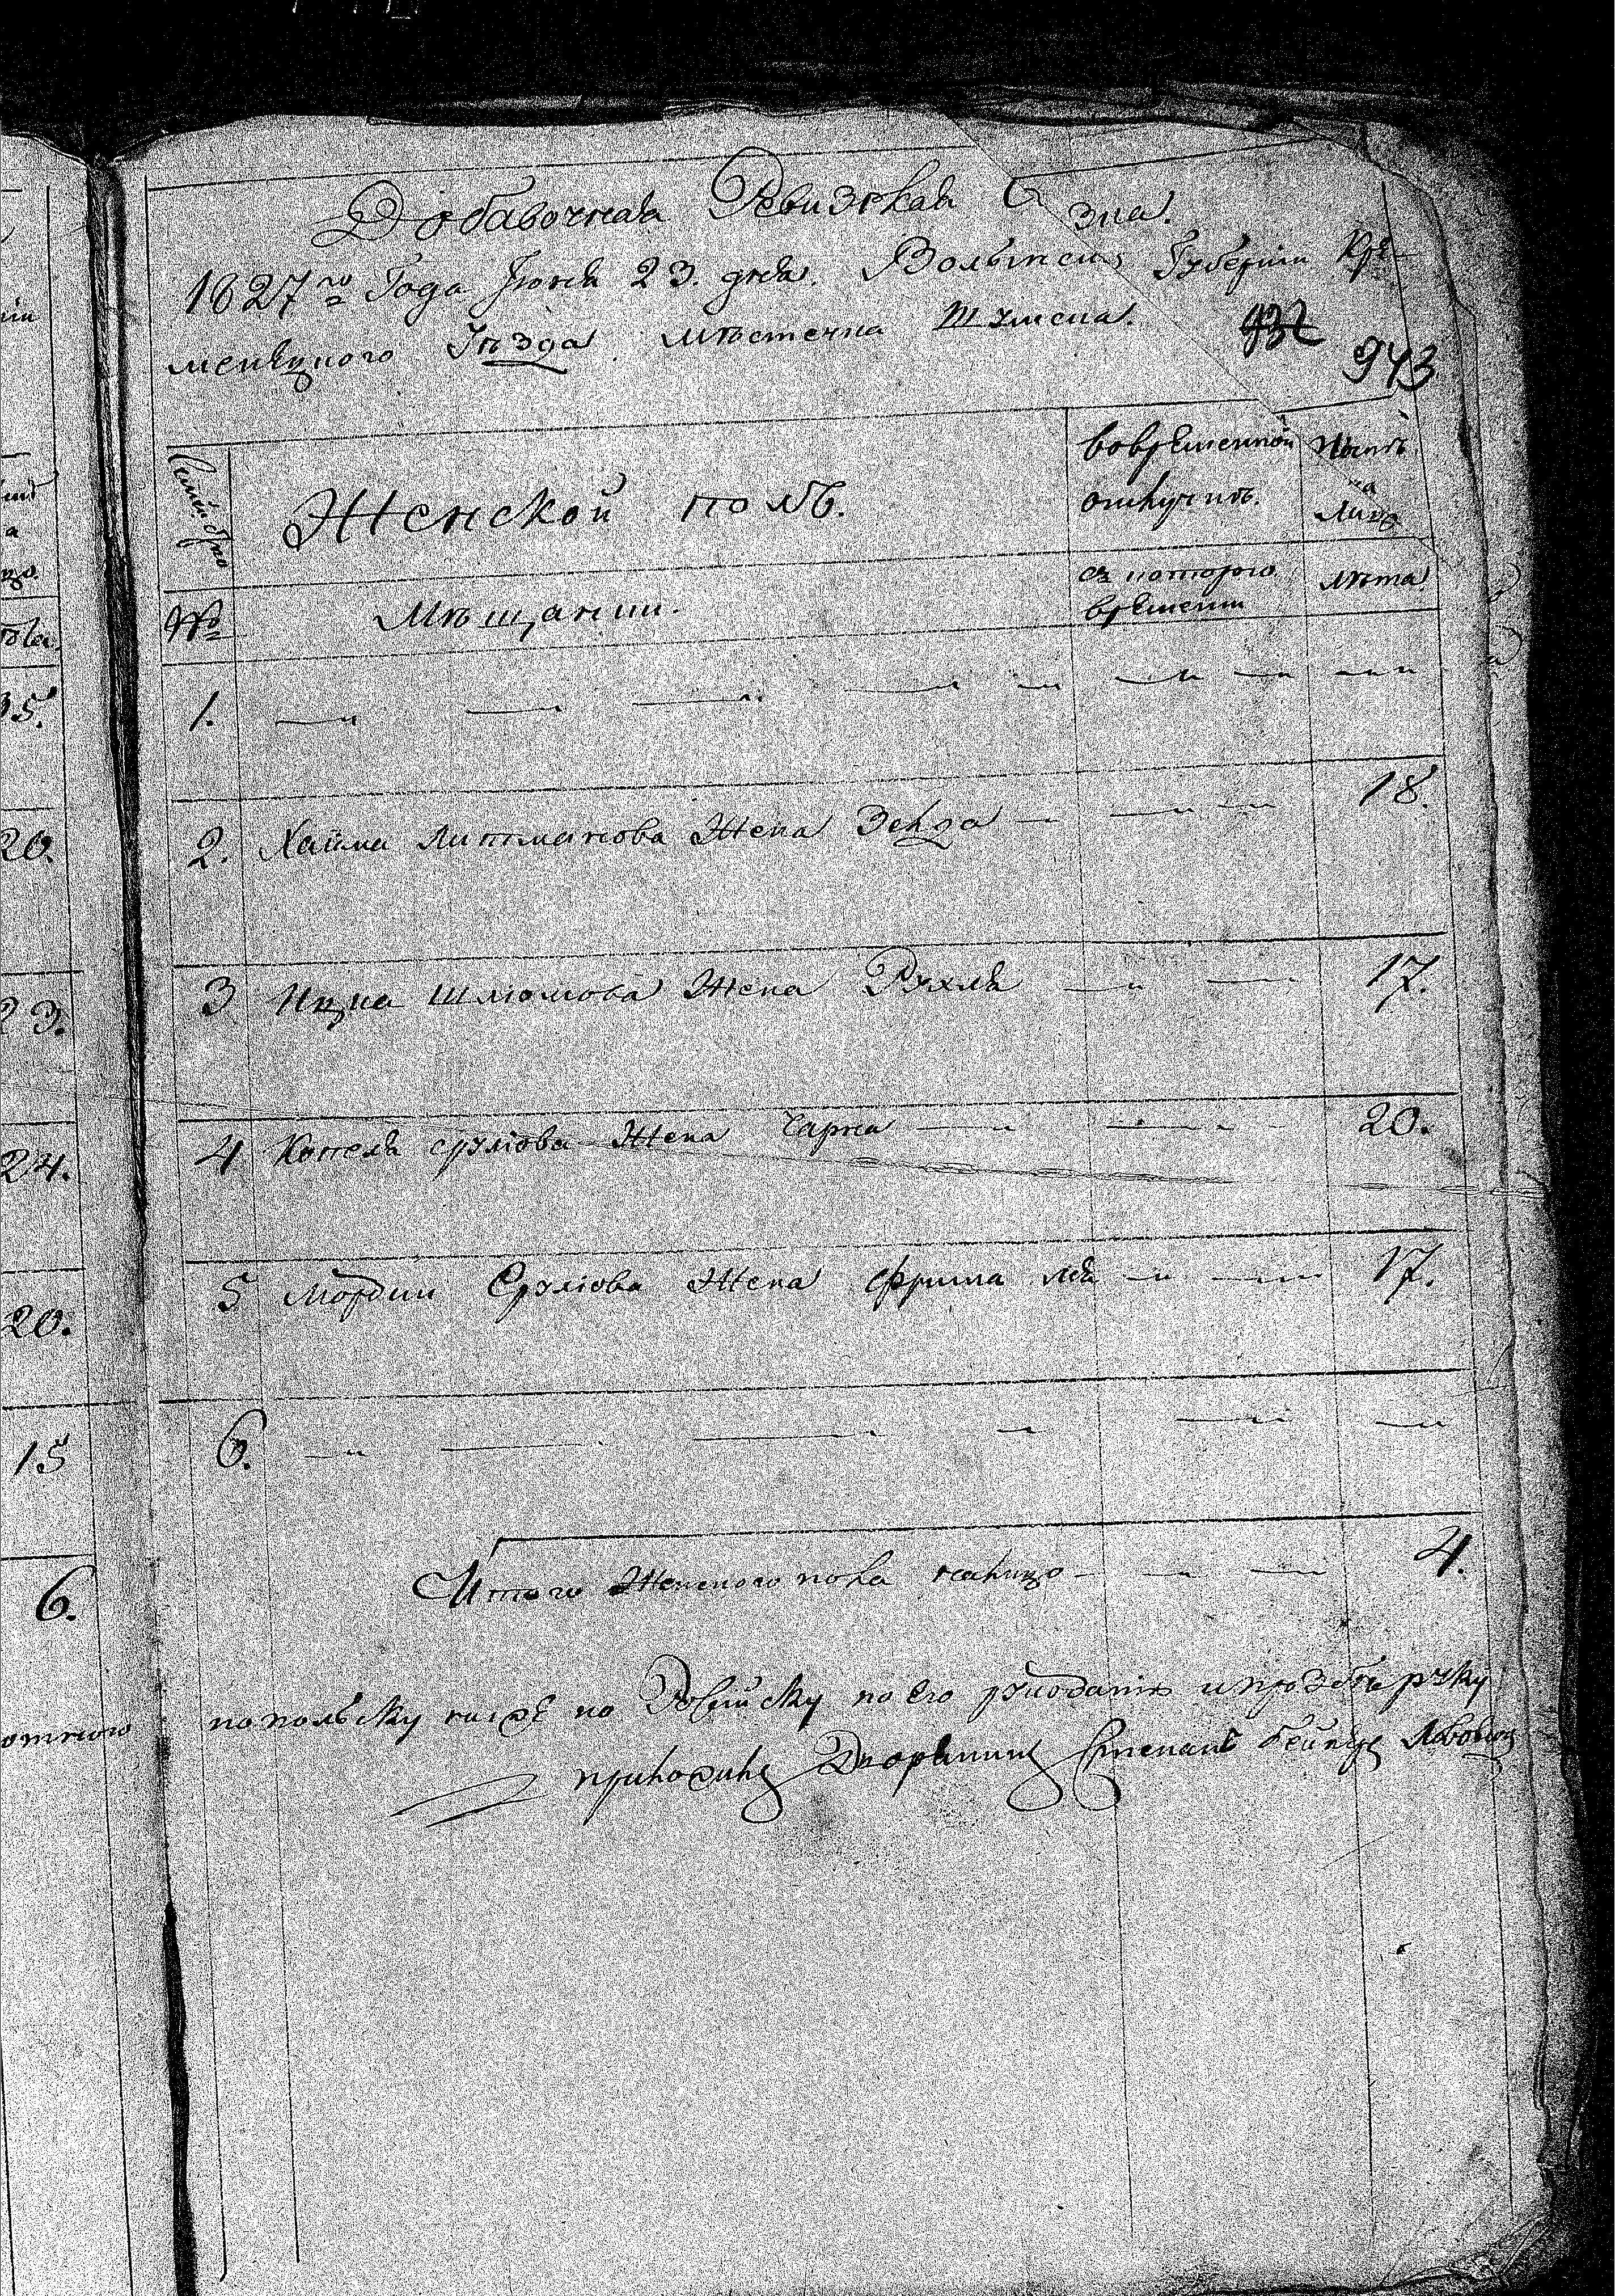 Добавочная Ревизская С зка.
1827го Года Іюня 23. дня. Волынск Губерніи Кре-
менецкого Уѣзда мѣстечка Шумска.
932
943
Женской полъ.
вовременной отлучкѣ.
Нынѣ на Лицо
№
Мѣщанки.
съ котораго времени
лѣта
1.
2. Хаима Литманова Жена Зельда 18.
3 Ицка Шліомова Жена Рухля 17.
4 Копеля Срулiова Жена Чарна 20.
5 Мордки Срулiова Жена Фрима Лея 17.
6.
Итого Женского пола налицо 4.
попольску по Его рукоданію и прозбѣ руку
приложилъ Дворянинъ Степанъ
35.
20.
23.
24.
20.
15
6.